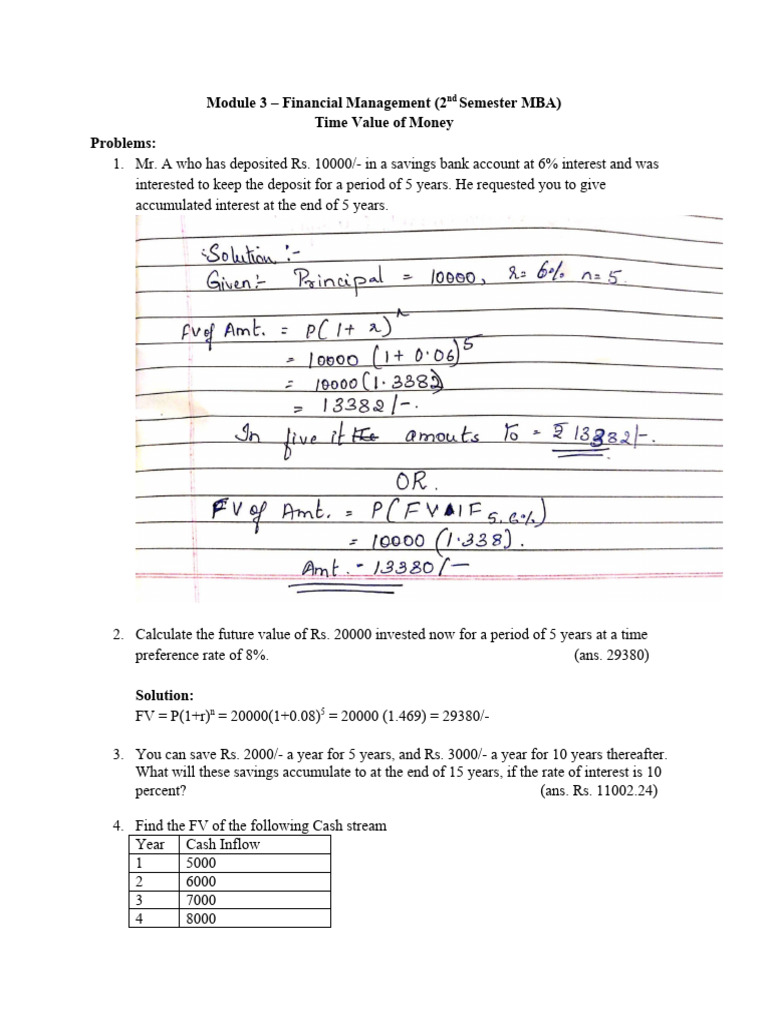 Module 3 – Financial Management (2nd Semester MBA)
Time Value of Money
Problems:
1. Mr. A who has deposited Rs. 10000/- in a savings bank account at 6% interest and was
interested to keep the deposit for a period of 5 years. He requested you to give
accumulated interest at the end of 5 years.
Solution :-
Given:- Principal = 10000, r= 6% n= 5.
FV of Amt. = P(1+ r)^n
= 10000 (1+ 0.06)^5
= 10000 (1.3382)
= 13382/-.
In five it amouts to = ₹ 13382/-.
OR.
FV of Amt. = P(FVAIF 5, 6%)
= 10000 (1.338).
Amt. - 13380/-
2. Calculate the future value of Rs. 20000 invested now for a period of 5 years at a time
preference rate of 8%. (ans. 29380)
Solution:
FV = P(1+r)^n = 20000(1+0.08)^5 = 20000 (1.469) = 29380/-
3. You can save Rs. 2000/- a year for 5 years, and Rs. 3000/- a year for 10 years thereafter.
What will these savings accumulate to at the end of 15 years, if the rate of interest is 10
percent? (ans. Rs. 11002.24)
4. Find the FV of the following Cash stream
Year Cash Inflow
1 5000
2 6000
3 7000
4 8000